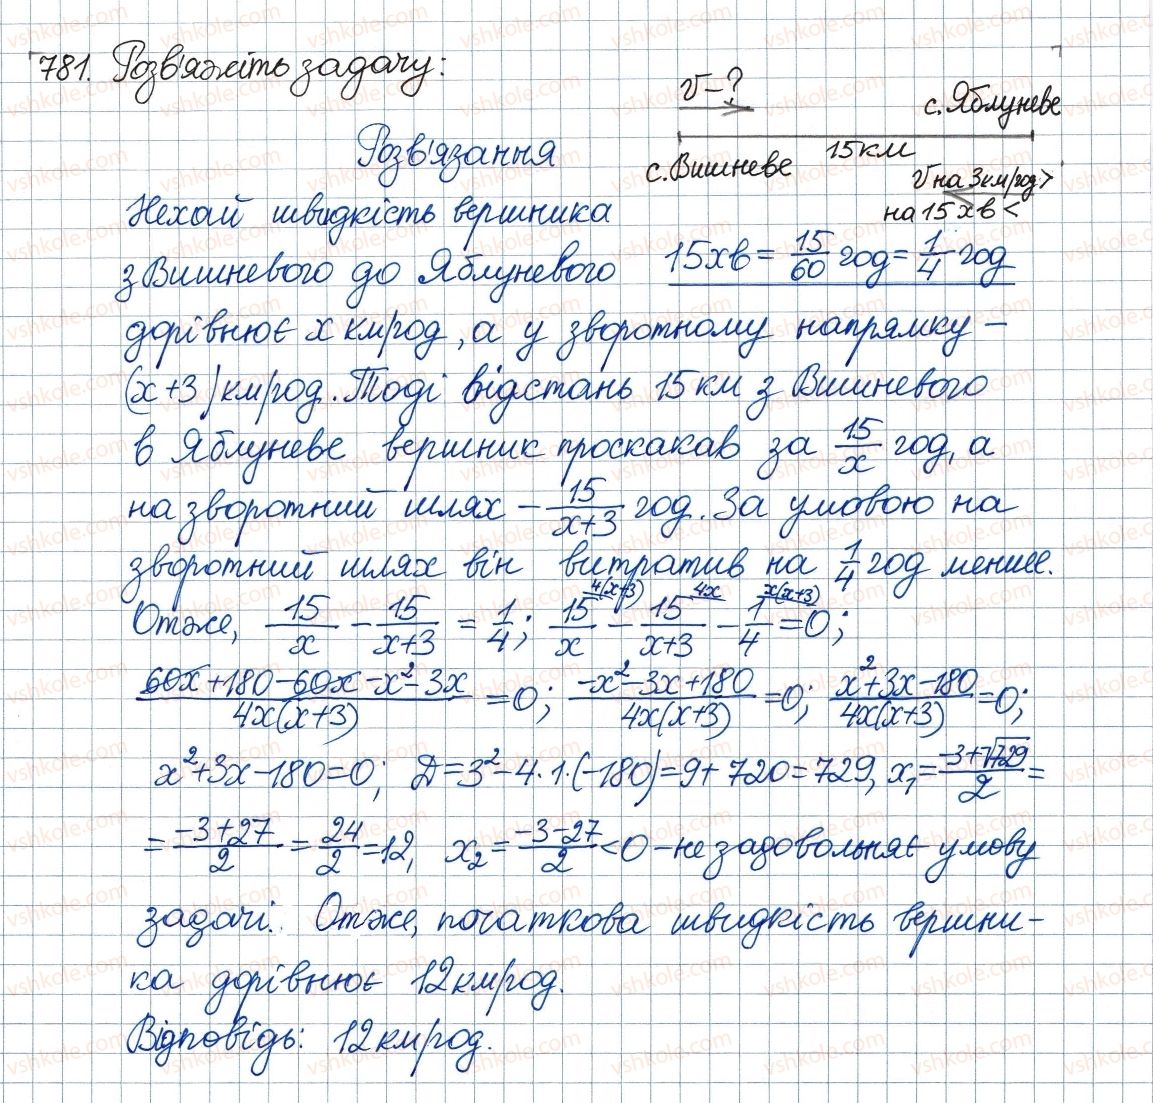 781. Розв'яжіть задачу:
V-?
с. Яблуневе
15 км
с. Вишневе
V на 3км/год >
на 15 хв <
Розв'язання
Нехай швидкість вершника
з Вишневого до Яблуневого
15хв = 15/60 год = 1/4 год
дорівнює x км/год, а у зворотному напрямку –
(x+3) км/год. Тоді відстань 15 км з Вишневого
в Яблуневе вершник проскакав за 15/x год, а
на зворотний шлях – 15/(x+3) год. За умовою на
зворотний шлях він витратив на 1/4 год менше.
Отже, 15/x - 15/(x+3) = 1/4; 15/x ^4(x+3) - 15/(x+3) ^4x - 1/4 ^x(x+3) = 0;
(60x+180-60x-x²-3x)/(4x(x+3)) = 0; (-x²-3x+180)/(4x(x+3)) = 0; (x²+3x-180)/(4x(x+3)) = 0;
x²+3x-180=0; Д=3²-4·1·(-180)=9+720=729, x₁=(-3+√729)/2=
=(-3+27)/2=24/2=12, x₂=(-3-27)/2<0 – не задовольняє умову
задачі. Отже, початкова швидкість вершни-
ка дорівнює 12 км/год.
Відповідь: 12 км/год.
vshkole.com